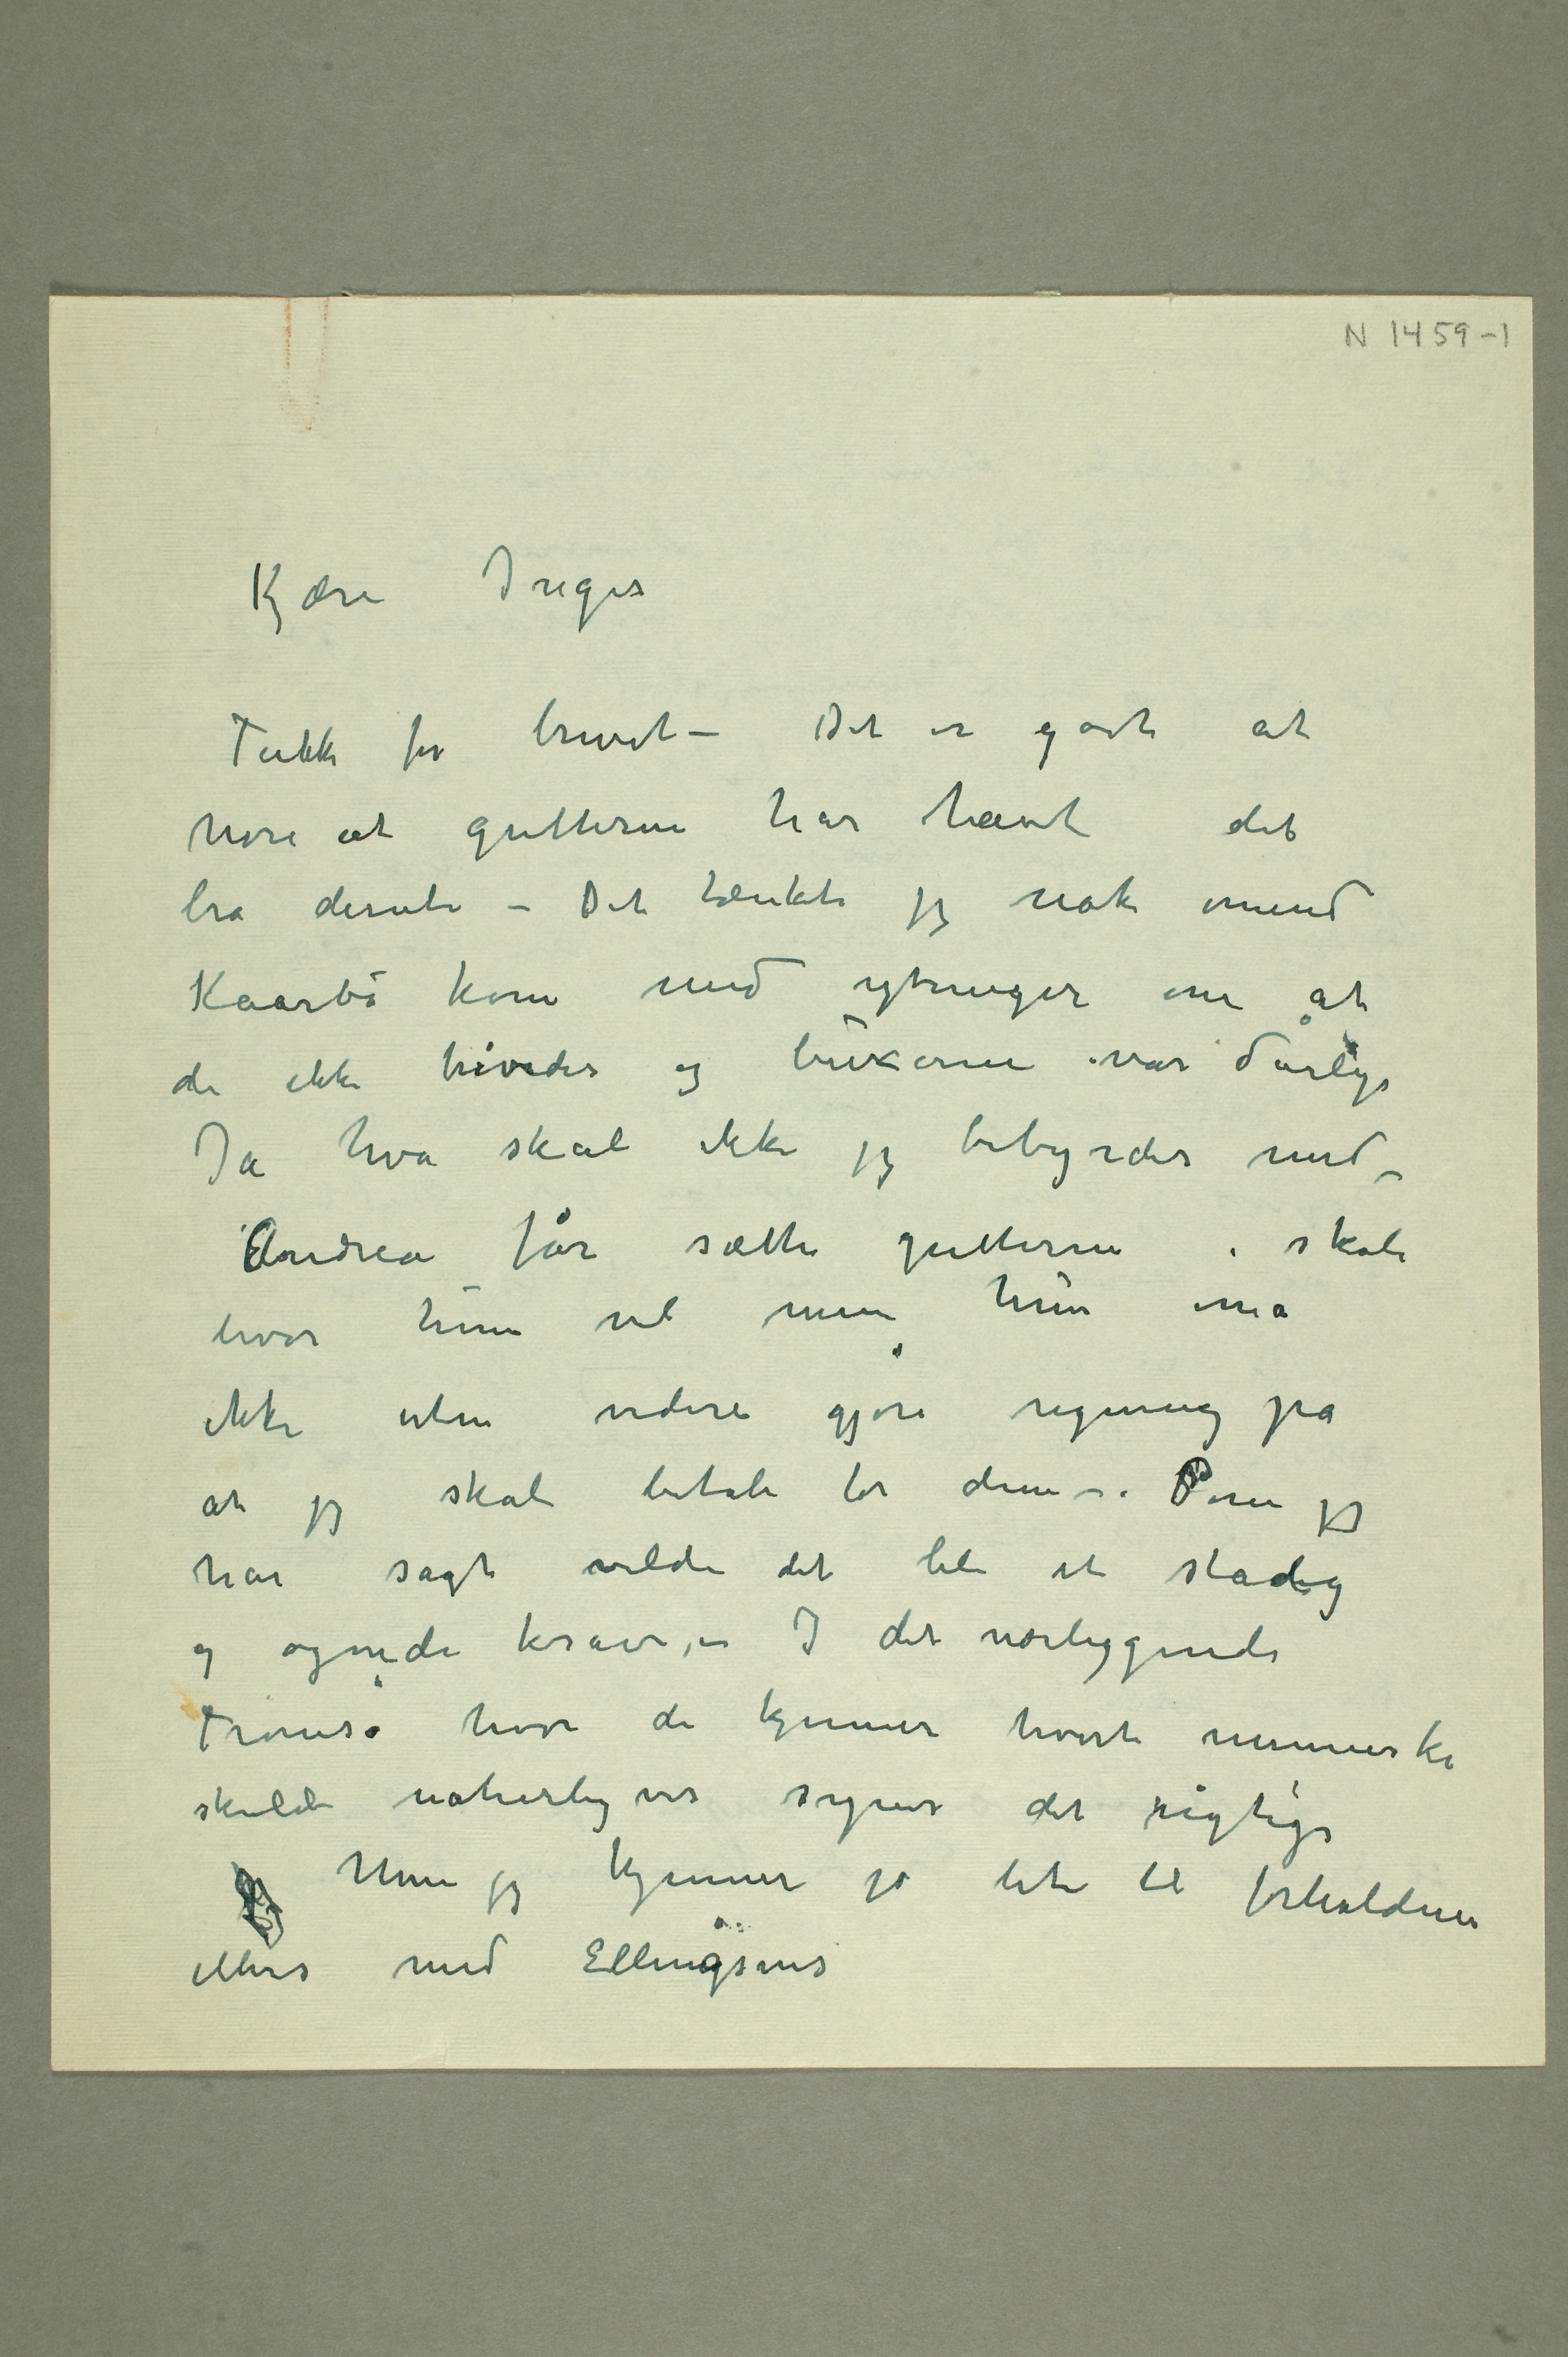 N 1459-1
Kjære Inger
Takk for brevet – Det er godt at
høre at gutterne har havt det
bra derute – Det tænkte jeg nok omend
Kaarbø kom med ytringer om at
de ikke trivedes og buxerne var dårlige
Ja hva skal ikke jeg bebyrdes med –
Andrea får sætte gutterne i skole
hvor hun vil men hun må
ikke uten videre gjøre regning på
at jeg skal betale for dem –. Som jeg
har sagt vilde det bli et stadig
og øgende krav, – I det nærliggende
Tromsø hvor de kjenner hvert menneske
skulde naturligvis synes det rigtige
Men jeg kjenner jo lite til forholdene
ellers med Ellingsens